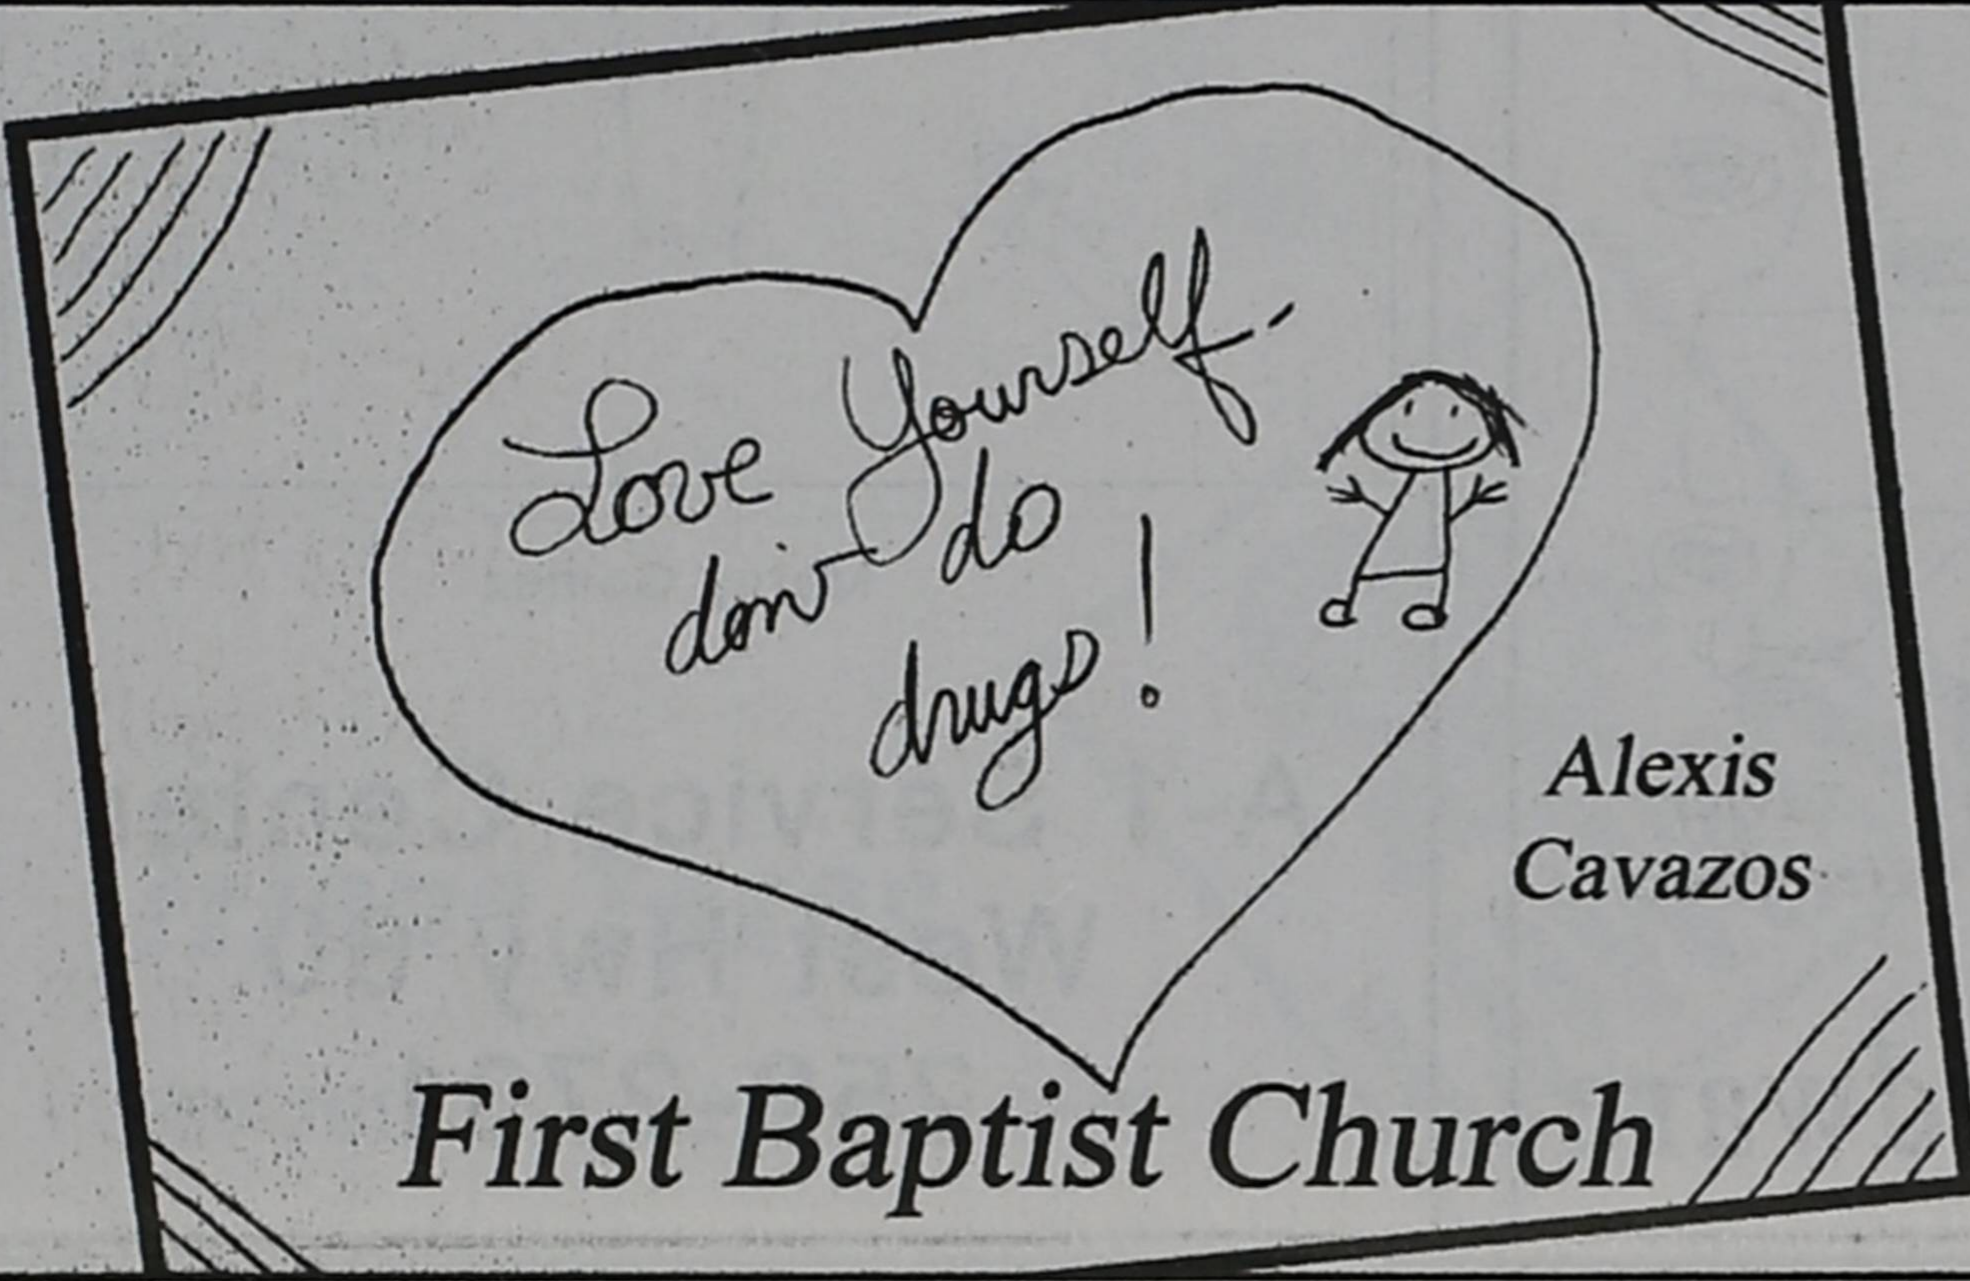 Love Yourself-
don't do
drugs!
Alexis
Cavazos
First Baptist Church